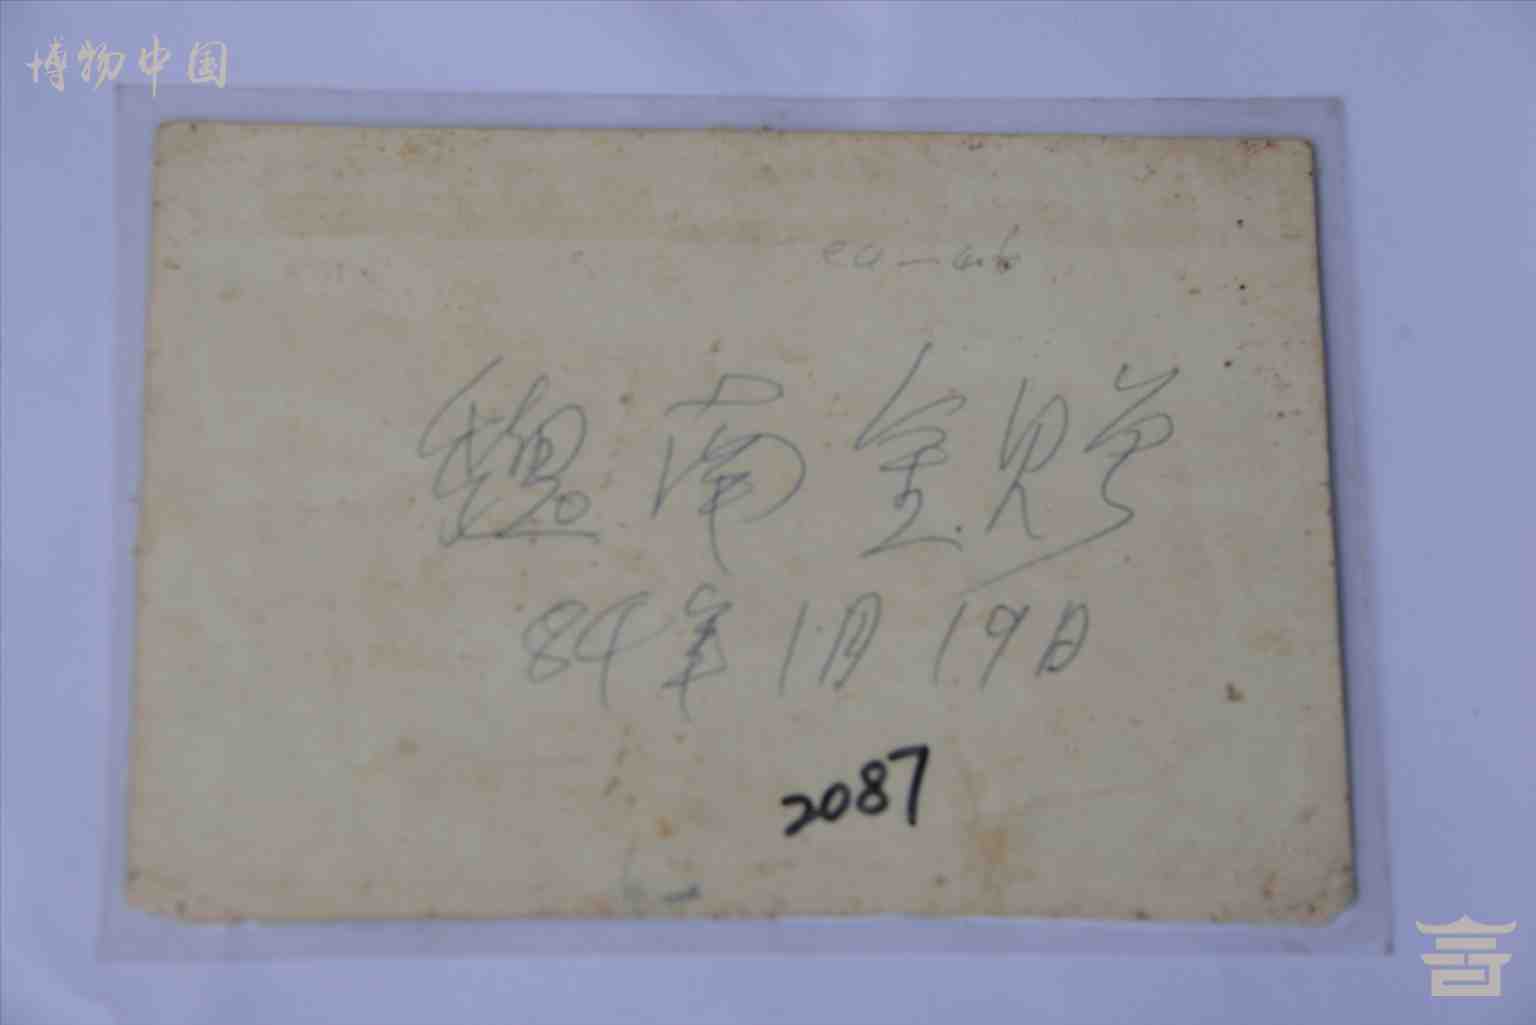 博物中国
魏南金贈
84年1月19日
2087